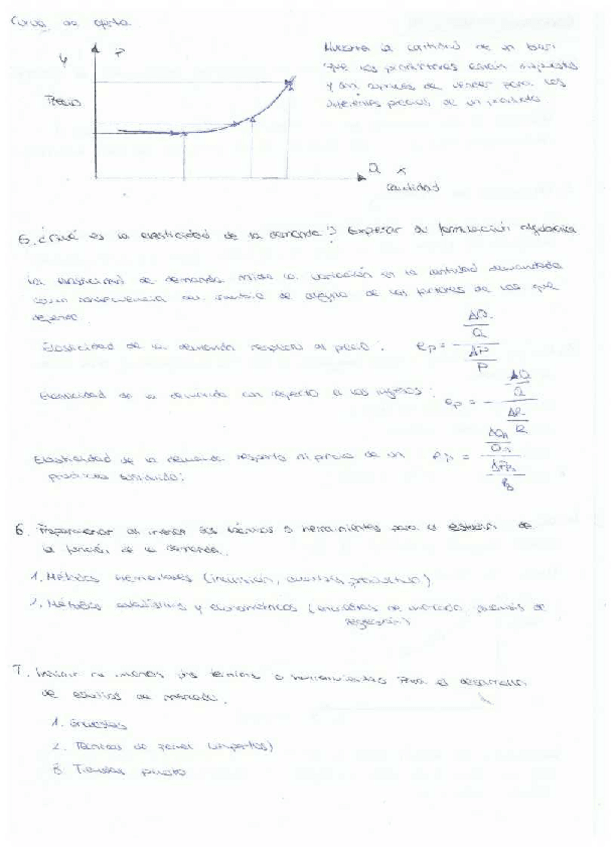 Curva de oferta
Y P
Precio
Q X
Cantidad
Muestra la cantidad de un bien
que los productores están dispuestos
y son capaces de vender para los
diferentes precios de un producto
5. ¿Qué es la elasticidad de la demanda? Expresar su formulación algebraica
La elasticidad de demanda mide la variación en la cantidad demandada
como consecuencia del cambio de alguno de los factores de los que
depende.
Elasticidad de la demanda respecto al precio: ep = - ΔQ/Q / ΔP/P
Elasticidad de la demanda con respecto a los ingresos: ep = - ΔQ/Q / ΔR/R
Elasticidad de la demanda respecto al precio de un ep =
producto sustitutivo:
6. Proporcionar al menos dos técnicas o herramientas para el estudio de
la función de la demanda.
1. Métodos
1. Métodos estadísticos y econométricos (encuestas de mercado,
regresión)
7. Indicar al menos tres técnicas o herramientas para el desarrollo
de estudios de mercado.
1. Encuestas
2. Técnicas de panel (expertos)
3. Tiendas piloto